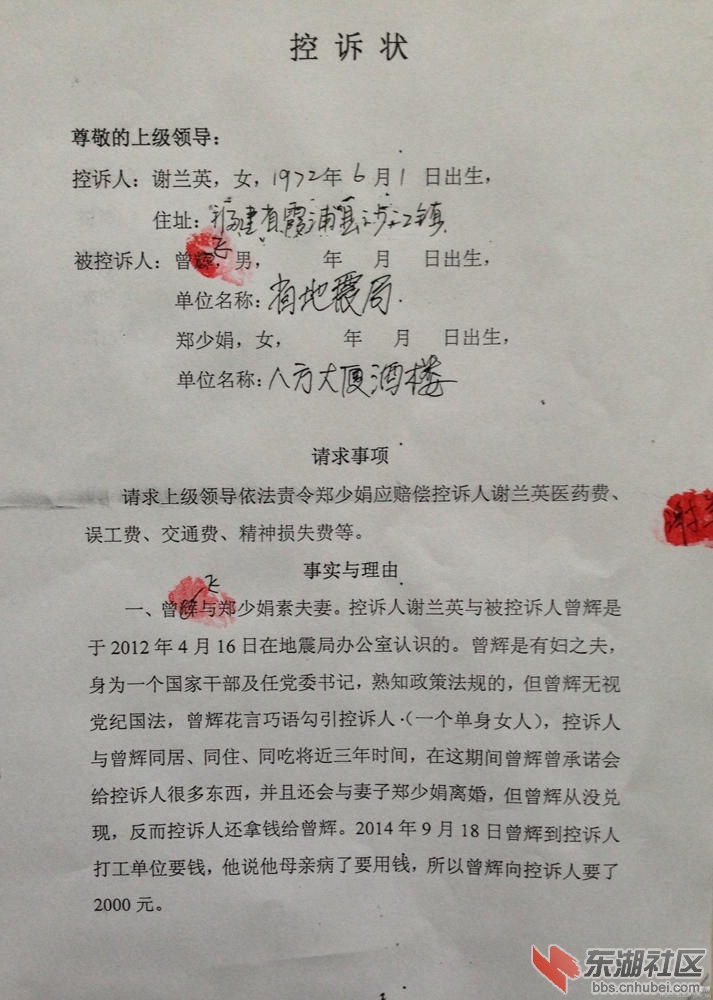 控诉状
尊敬的上级领导：
控诉人：谢兰英，女，1972年6月1日出生，
住址：福建省霞浦县沙江镇
飞
被控诉人：曾辉，男，　　年　月　日出生，
单位名称：省地震局.
郑少娟，女，　　年　月　日出生，
单位名称：八方大厦酒楼
请求事项
请求上级领导依法责令郑少娟应赔偿控诉人谢兰英医药费、
误工费、交通费、精神损失费等。
谢兰
事实与理由
飞
一、曾辉与郑少娟素夫妻。控诉人谢兰英与被控诉人曾辉是
于2012年4月16日在地震局办公室认识的。曾辉是有妇之夫，
身为一个国家干部及任党委书记，熟知政策法规的，但曾辉无视
党纪国法，曾辉花言巧语勾引控诉人·（一个单身女人），控诉人
与曾辉同居、同住、同吃将近三年时间，在这期间曾辉曾承诺会
给控诉人很多东西，并且还会与妻子郑少娟离婚，但曾辉从没兑
现，反而控诉人还拿钱给曾辉。2014年9月18日曾辉到控诉人
打工单位要钱，他说他母亲病了要用钱，所以曾辉向控诉人要了
2000元。
东湖社区
bbs.cnhubei.com